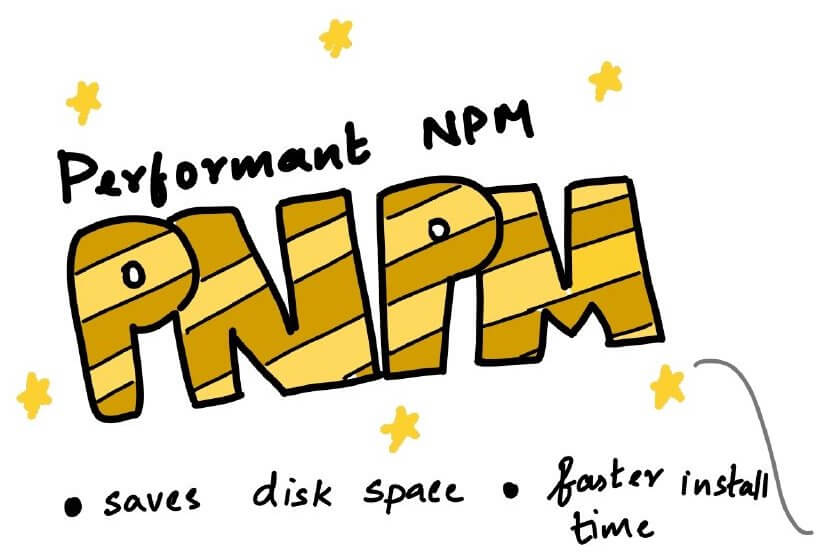 Performant NPM
PNPM
• saves disk space • faster install
time